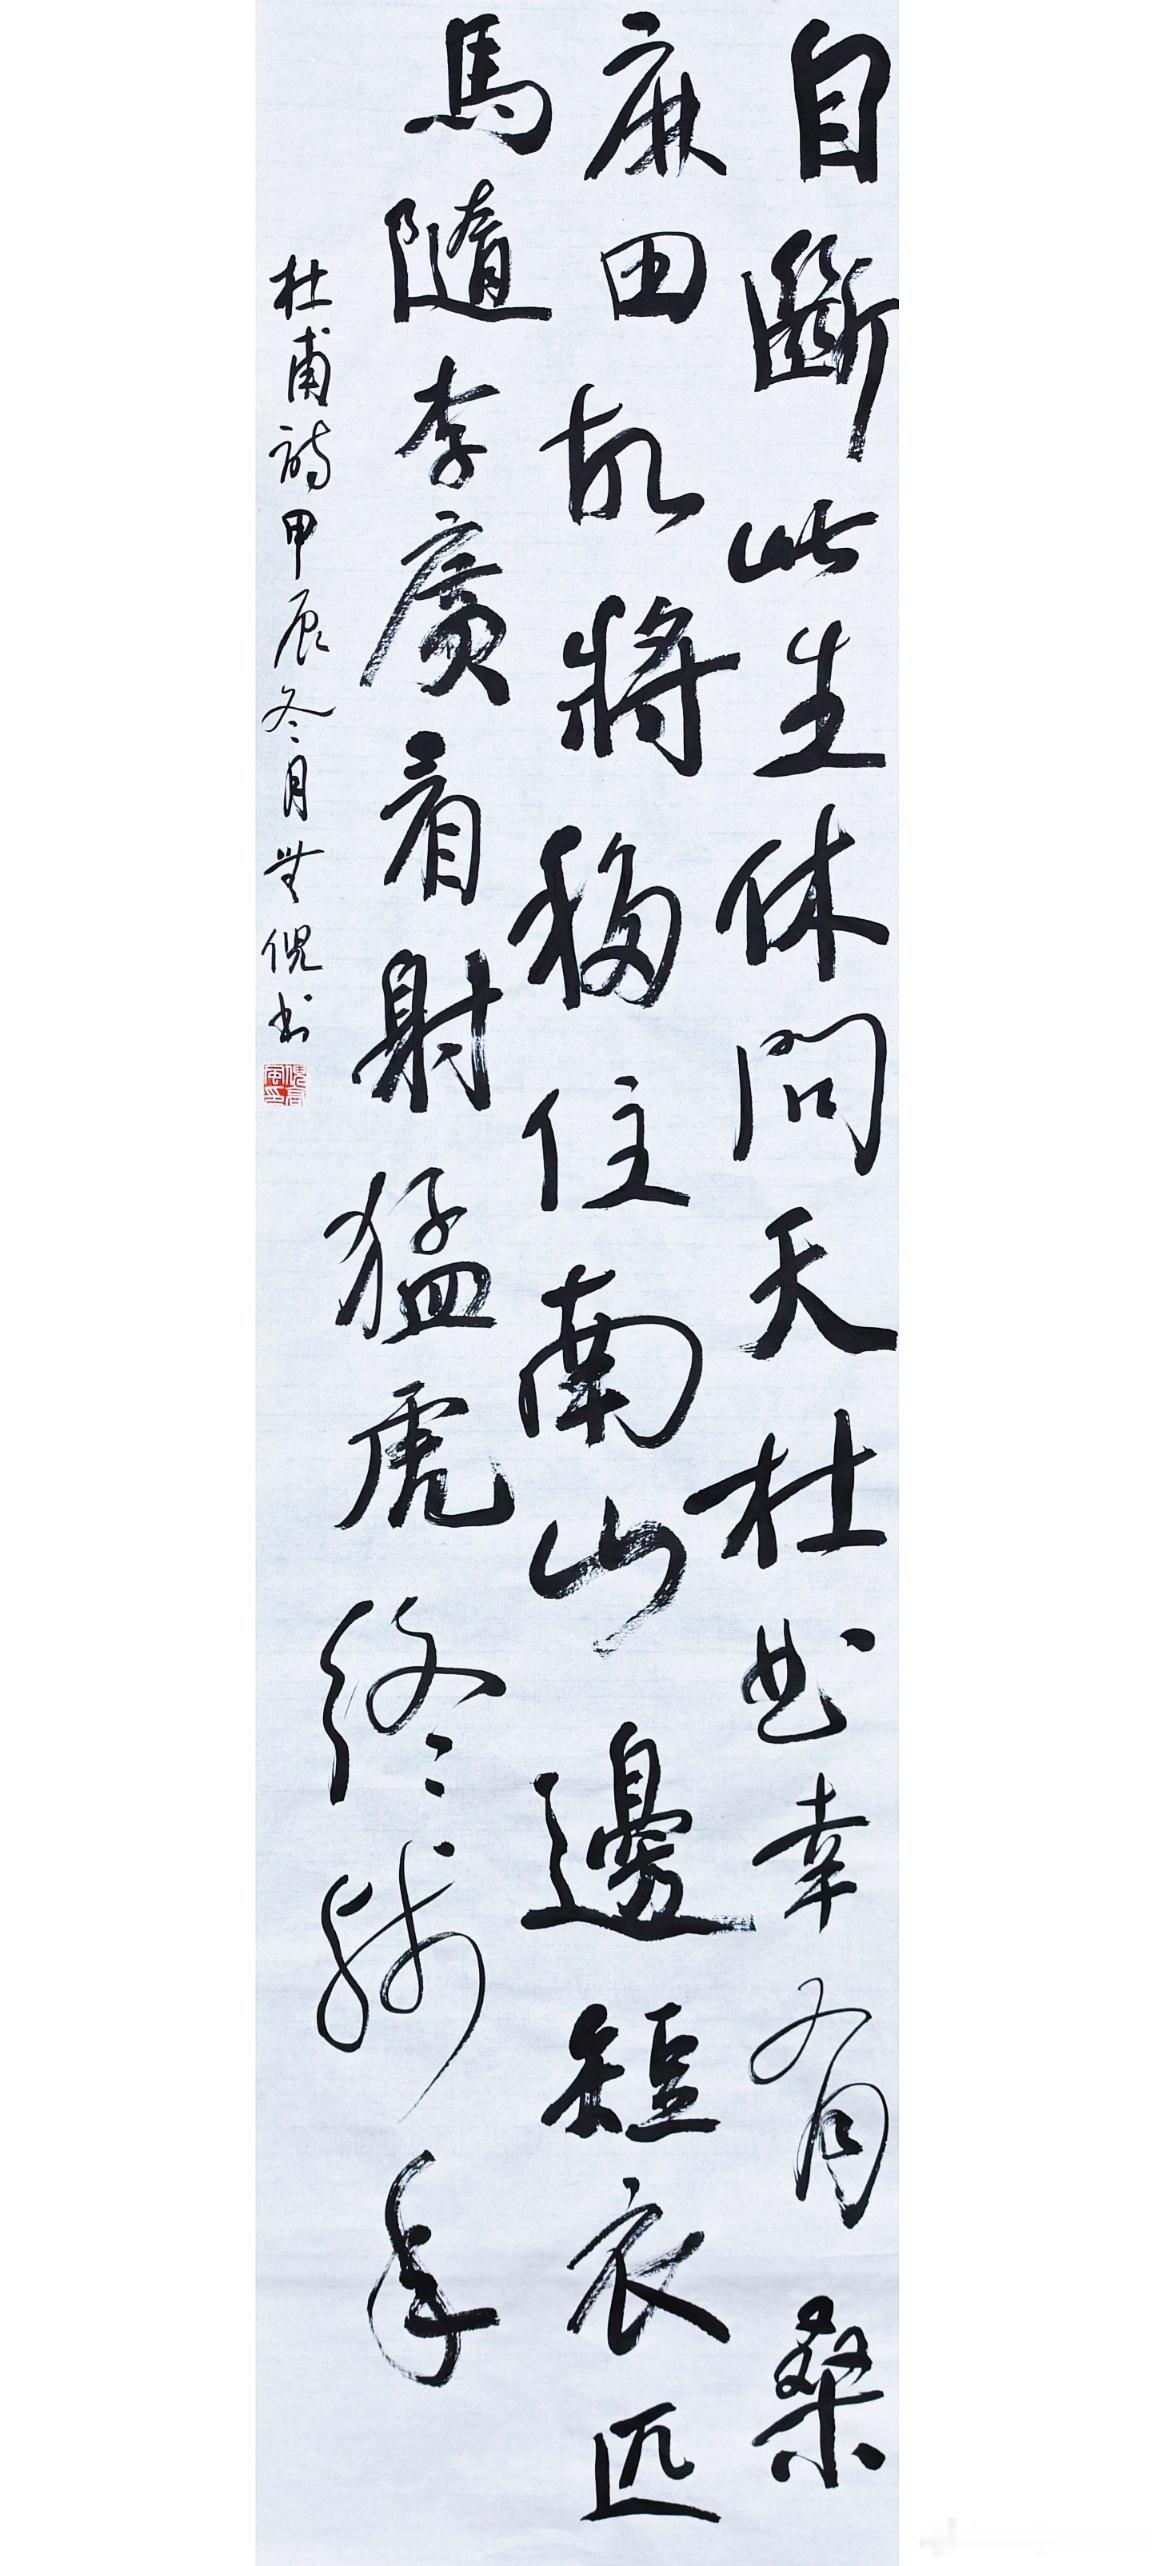 自斷此生休問天杜曲幸有桑
麻田故將移住南山邊短衣匹
馬隨李廣看射猛虎終殘年
杜甫詩甲辰冬月無倪書